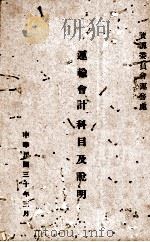 資源委員會運務處
運輸會計科目及說明
中華民國三十年三月